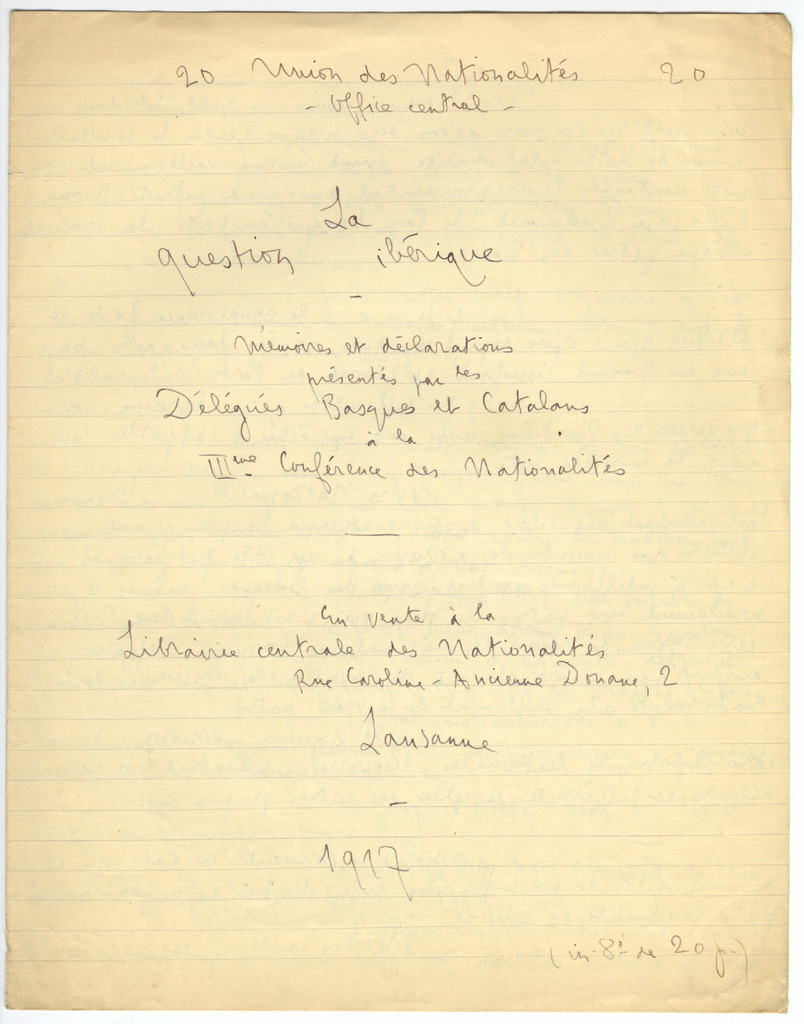 20 Union des Nationalités 20
- Office central -
La
question ibérique
-
Mémoires et déclarations
présentés par les
Délégués Basques et Catalans
à la
IIIème Conférence des Nationalités
En vente à la
Librairie centrale des Nationalités
Rue Caroline - Ancienne Douane, 2
Lausanne
-
1917
(in-8º de 20 p.)